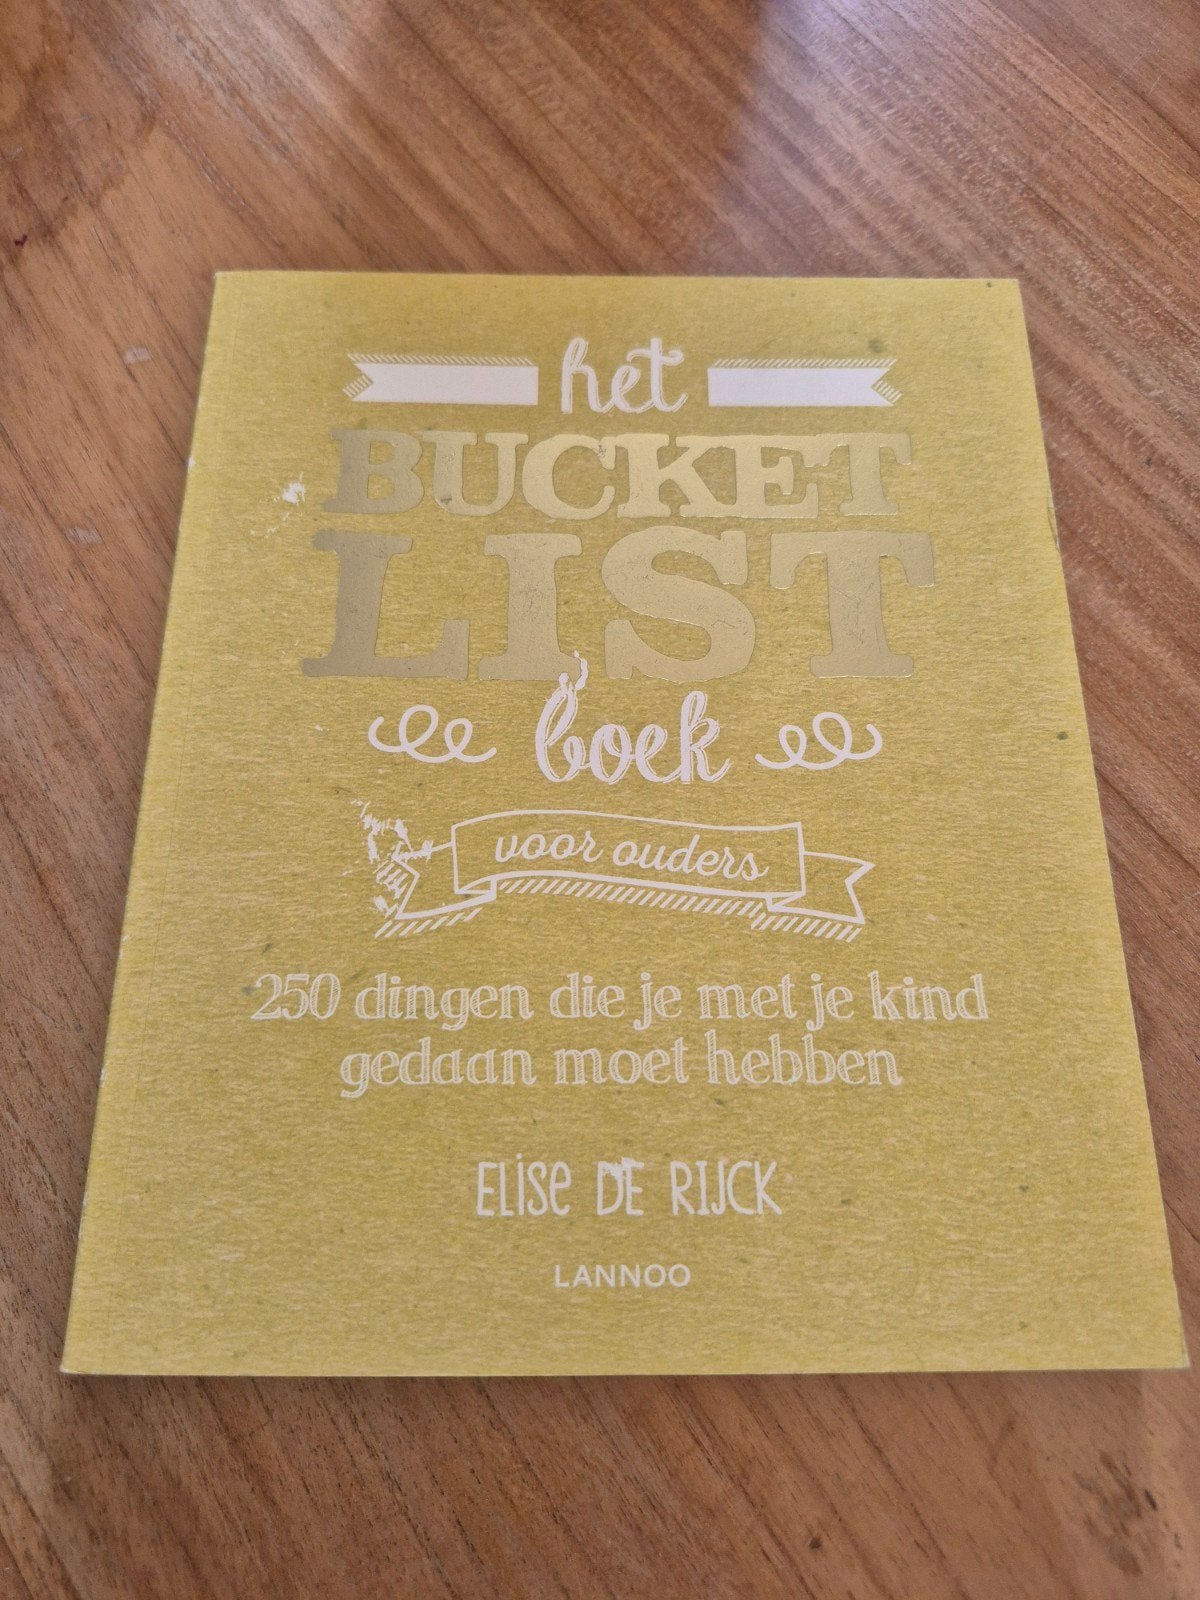 het
BUCKET
LIST
boek
voor ouders
250 dingen die je met je kind
gedaan moet hebben
ELiSe DE RIJCK
LANNOO